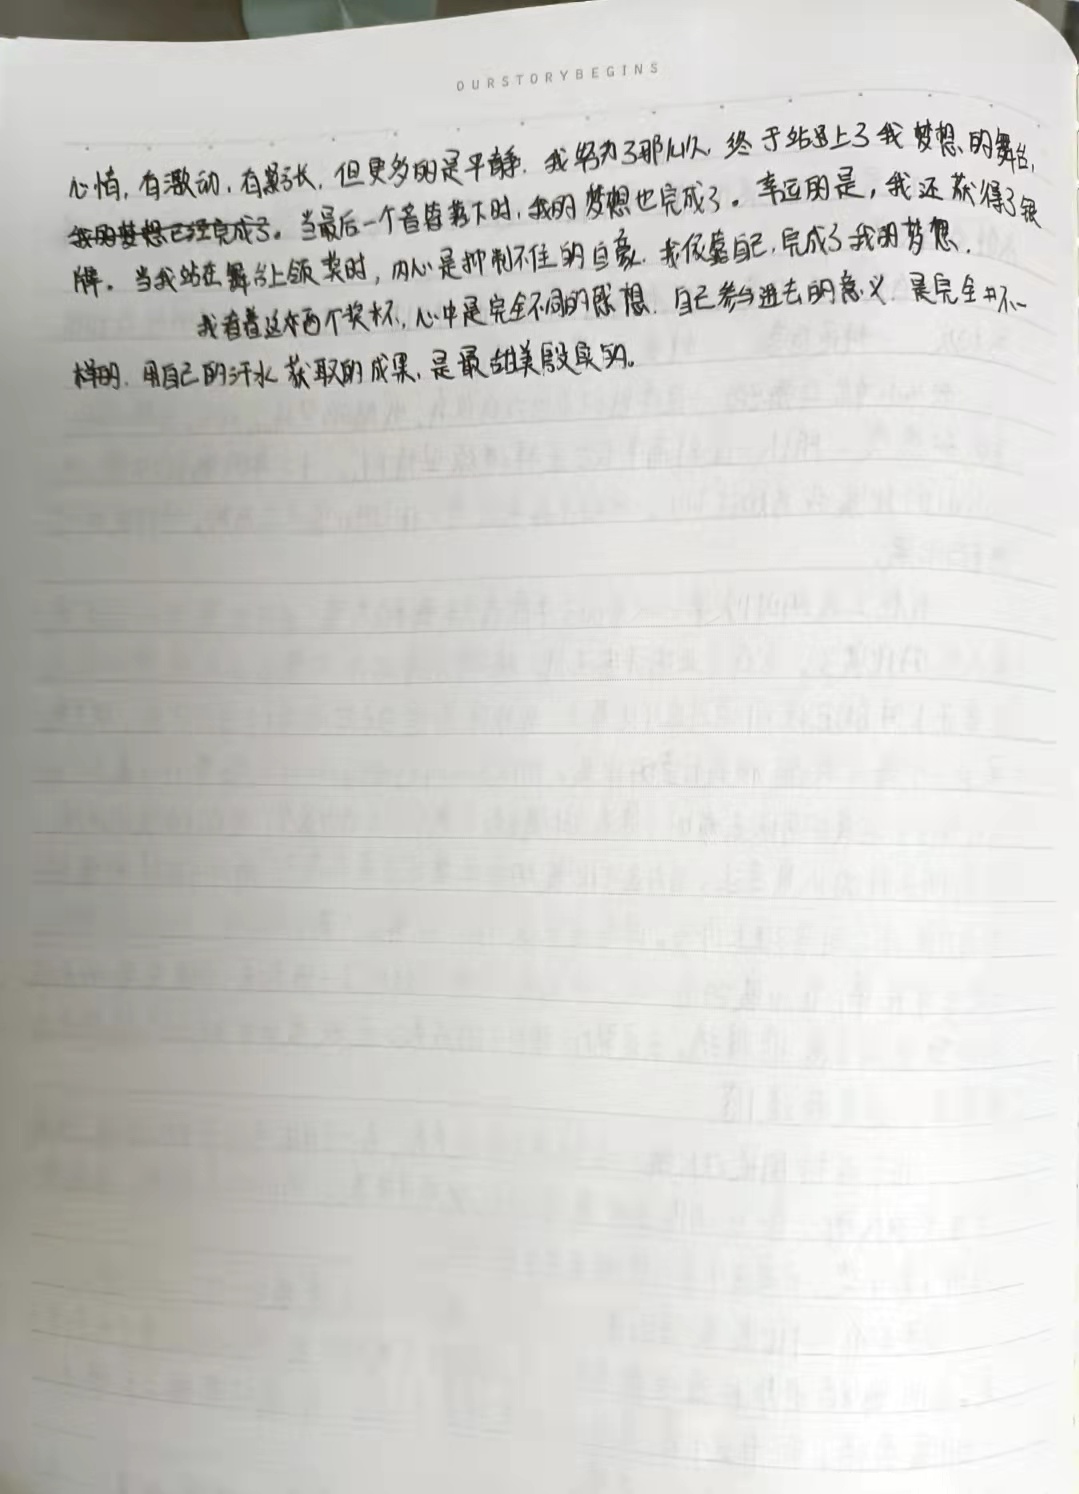 OURSTORYBEGINS
心情,有激动,有紧张,但更多的是平静.我努力了那么久,终于站上了我梦想的舞台,
我的梦想已经完成了。当最后一个音落下时,我的梦想也完成了。幸运的是,我还获得了银
牌。当我站在舞台上领奖时,内心是抑制不住的自豪.我依靠自己,完成了我的梦想.
我看着这两个奖杯,心中是完全不同的感想.自己参与进去的意义.是完全不一
样的.用自己的汗水获取的成果,是最甜美殷实的。